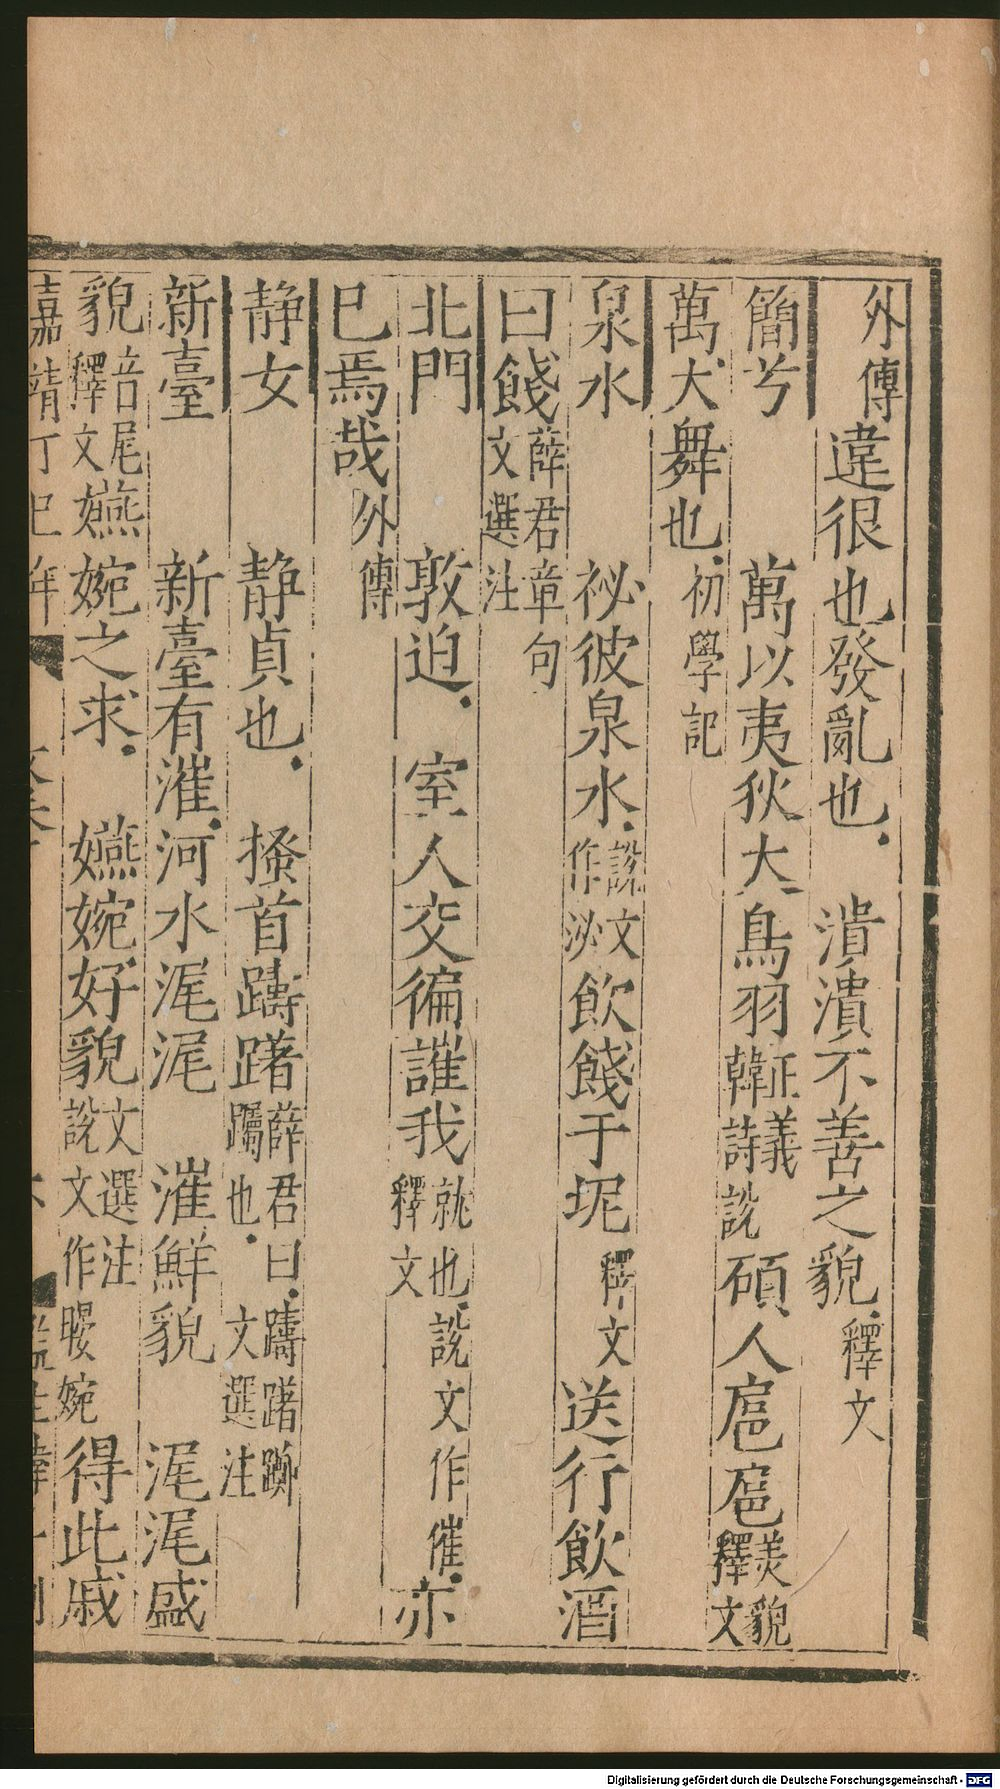 外傳違很也發亂也潰潰不善之貌釋文
簡兮萬以夷狄大鳥羽正義韓詩說碩人扈扈美貌釋文
萬大舞也初學記
泉水祕彼泉水說文作泌飲餞于坭釋文送行飲酒
曰餞薛君章句文選注
北門敦迫室人交徧讙我就也釋文說文作催亦
已焉哉外傳
静女静貞也搔首躊躇薛君曰躊躇躑躅也文選注
新臺新臺有漼河水浘浘漼鮮貌浘浘盛
貌音尾釋文嬿婉之求嬿婉好貌文選注說文作暥婉得此戚
嘉靖丁巳年
Digitalisierung gefördert durch die Deutsche Forschungsgemeinschaft - DFG